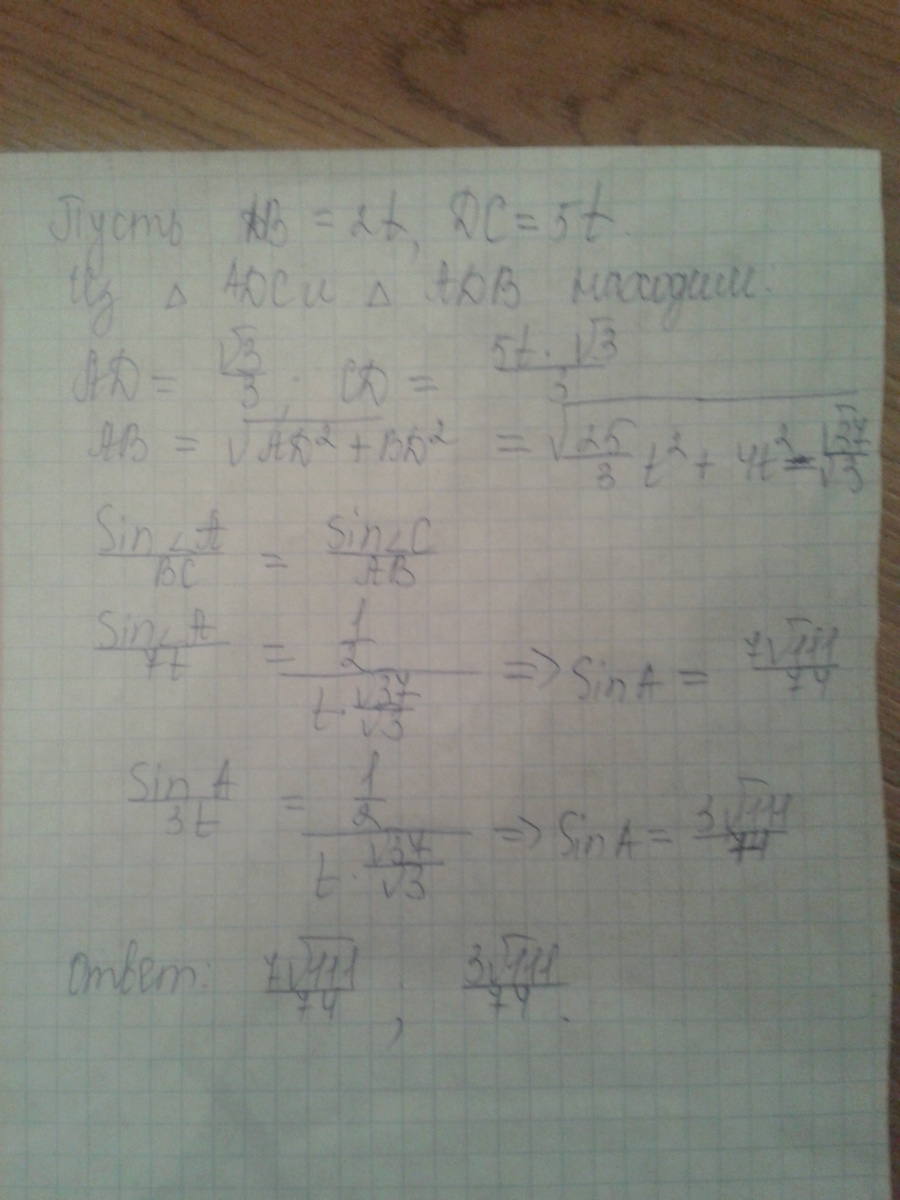 Пусть DB = 2t, DC = 5t.
Из △ ADC и △ ADB находим:
AD = √3/3 · CD = 5t · √3/3
AB = √(AD² + BD²) = √(25/3 t² + 4t²) = √37/√3
Sin∠A/BC = Sin∠C/AB
Sin∠A/7t = 1/2/(t · √37/√3) => Sin A = 7√111/74
Sin A/3t = 1/2/(t · √37/√3) => Sin A = 3√111/74
Ответ: 7√111/74 , 3√111/74.